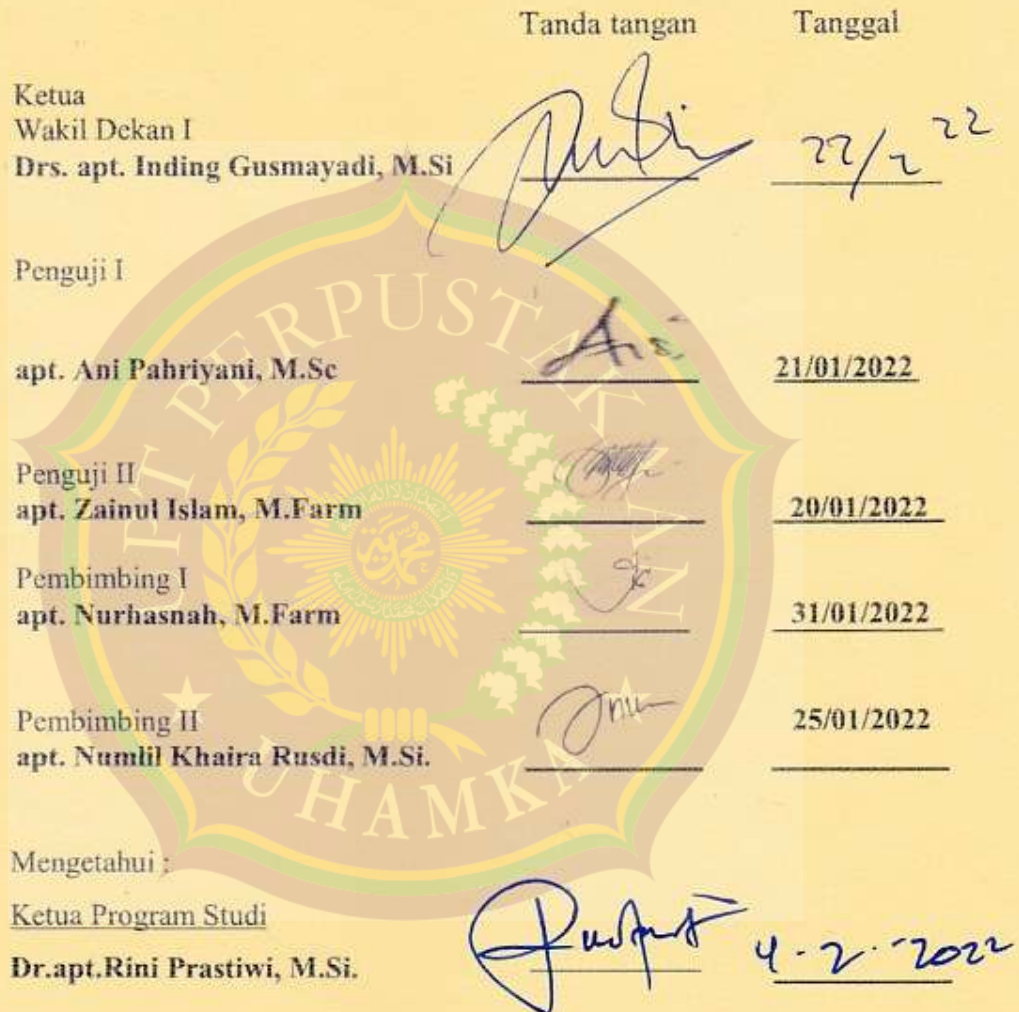 Tanda tangan Tanggal
Ketua
Wakil Dekan I
Drs. apt. Inding Gusmayadi, M.Si
22/2 22
Penguji I
apt. Ani Pahriyani, M.Sc 21/01/2022
Penguji II
apt. Zainul Islam, M.Farm 20/01/2022
Pembimbing I
apt. Nurhasnah, M.Farm 31/01/2022
Pembimbing II 25/01/2022
apt. Numlil Khaira Rusdi, M.Si.
Mengetahui :
Ketua Program Studi
Dr.apt.Rini Prastiwi, M.Si. 4-2-2022
UPT PERPUSTAKAAN
UHAMKA